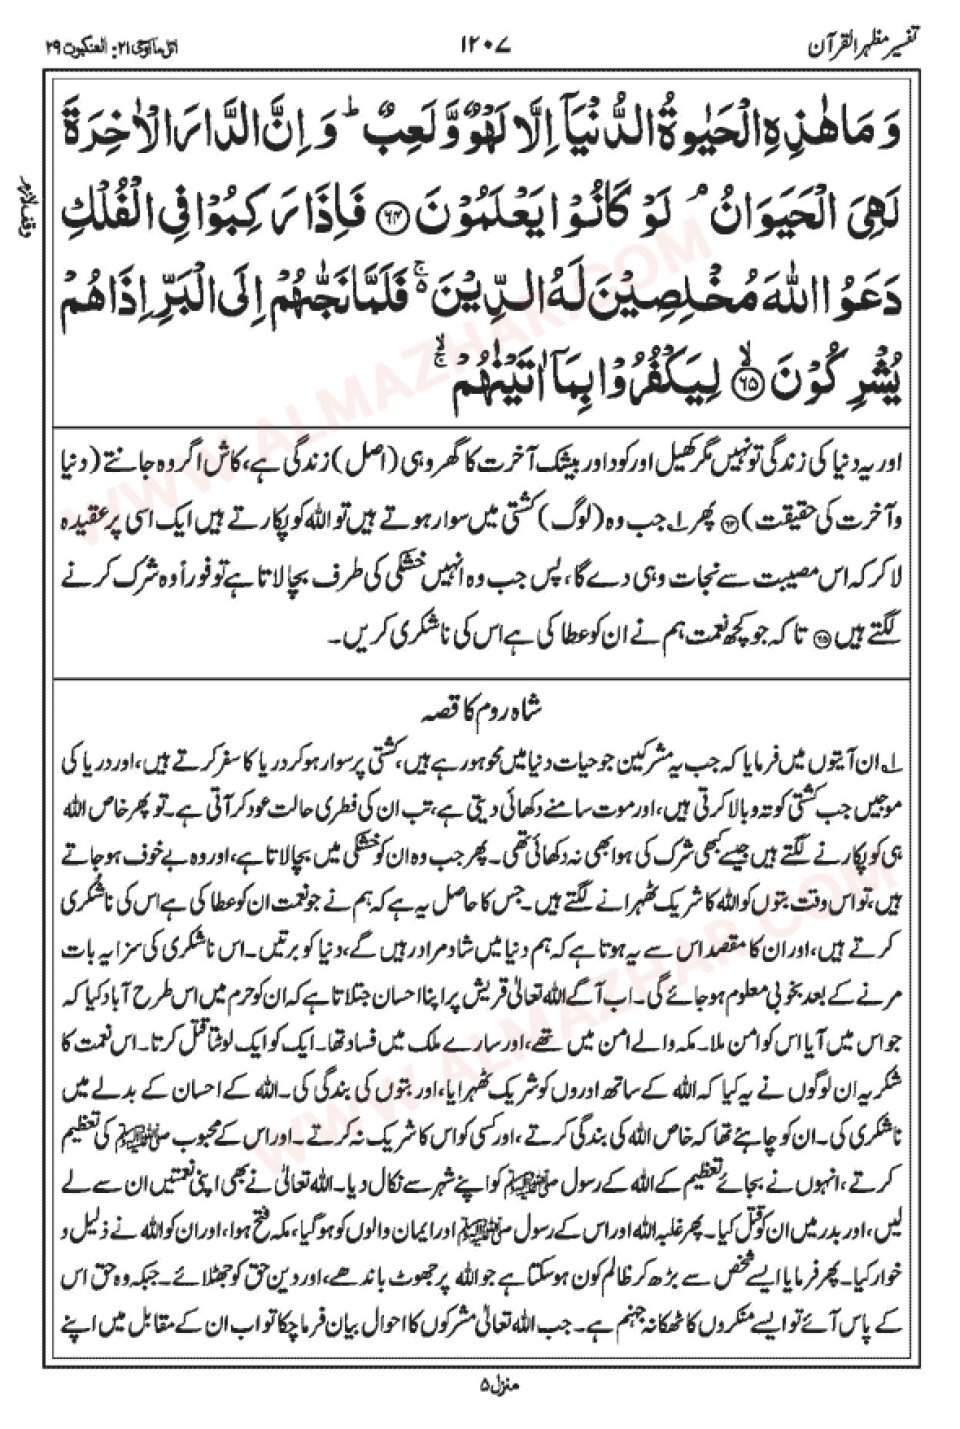 تفسیر مظہر القرآن ۱۲۰۷ اتل ما اوحی ۲۱: العنکبوت ۲۹
وَمَا هٰذِهِ الْحَيٰوةُ الدُّنْيَآ اِلَّا لَهْوٌ وَّلَعِبٌ ؕ وَاِنَّ الدَّارَ الْاٰخِرَةَ
لَهِيَ الْحَيَوَانُ ۘ لَوْ كَانُوْا يَعْلَمُوْنَ ﴿۶۴﴾ فَاِذَا رَكِبُوْا فِي الْفُلْكِ
وقف لازم
دَعَوُا اللّٰهَ مُخْلِصِيْنَ لَهُ الدِّيْنَ ۚ۬ فَلَمَّا نَجّٰىهُمْ اِلَى الْبَرِّ اِذَا هُمْ
يُشْرِكُوْنَ ﴿۶۵﴾ۙ لِيَكْفُرُوْا بِمَآ اٰتَيْنٰهُمْ ۙۚ
اور یہ دنیا کی زندگی تو نہیں مگر کھیل اور کود اور بیشک آخرت کا گھر وہی (اصل) زندگی ہے، کاش اگر وہ جانتے (دنیا
و آخرت کی حقیقت) ﴿۶۴﴾ پھر ۱؎ جب وہ (لوگ) کشتی میں سوار ہوتے ہیں تو اللہ کو پکارتے ہیں ایک اسی پر عقیدہ
لا کر کہ اس مصیبت سے نجات وہی دے گا، پس جب وہ انہیں خشکی کی طرف بچا لاتا ہے تو فوراً وہ شرک کرنے
لگتے ہیں ﴿۶۵﴾ تا کہ جو کچھ نعمت ہم نے ان کو عطا کی ہے اس کی ناشکری کریں۔
شاہ روم کا قصہ
۱؎ ان آیتوں میں فرمایا کہ جب یہ مشرکین جو حیات دنیا میں محو ہو رہے ہیں، کشتی پر سوار ہو کر دریا کا سفر کرتے ہیں، اور دریا کی
موجیں جب کشتی کو تہ و بالا کرتی ہیں، اور موت سامنے دکھائی دیتی ہے، تب ان کی فطری حالت عود کر آتی ہے۔ تو پھر خاص اللہ
ہی کو پکارنے لگتے ہیں جیسے کبھی شرک کی ہوا بھی نہ دکھائی تھی۔ پھر جب وہ ان کو خشکی میں بچا لاتا ہے، اور وہ بے خوف ہو جاتے
ہیں، تو اس وقت بتوں کو اللہ کا شریک ٹھہرانے لگتے ہیں۔ جس کا حاصل یہ ہے کہ ہم نے جو نعمت ان کو عطا کی ہے اس کی ناشکری
کرتے ہیں، اور ان کا مقصد اس سے یہ ہوتا ہے کہ ہم دنیا میں شاد مراد رہیں گے، دنیا کو برتیں۔ اس ناشکری کی سزا یہ بات
مرنے کے بعد بخوبی معلوم ہو جائے گی۔ اب آگے اللہ تعالیٰ قریش پر اپنا احسان جتلاتا ہے کہ ان کو حرم میں اس طرح آباد کیا کہ
جو اس میں آیا اس کو امن ملا۔ مکہ والے امن میں تھے، اور سارے ملک میں فساد تھا۔ ایک کو ایک لوٹتا قتل کرتا۔ اس نعمت کا
شکریہ ان لوگوں نے یہ کیا کہ اللہ کے ساتھ اوروں کو شریک ٹھہرایا، اور بتوں کی بندگی کی۔ اللہ کے احسان کے بدلے میں
ناشکری کی۔ ان کو چاہئے تھا کہ خاص اللہ کی بندگی کرتے، اور کسی کو اس کا شریک نہ کرتے۔ اور اس کے محبوب ﷺ کی تعظیم
کرتے، انہوں نے بجائے تعظیم کے اللہ کے رسول ﷺ کو اپنے شہر سے نکال دیا۔ اللہ تعالیٰ نے بھی اپنی نعمتیں ان سے لے
لیں، اور بدر میں ان کو قتل کیا۔ پھر غلبہ اللہ اور اس کے رسول ﷺ اور ایمان والوں کو ہو گیا، مکہ فتح ہوا، اور ان کو اللہ نے ذلیل و
خوار کیا۔ پھر فرمایا ایسے شخص سے بڑھ کر ظالم کون ہو سکتا ہے جو اللہ پر جھوٹ باندھے، اور دین حق کو جھٹلائے۔ جبکہ وہ حق اس
کے پاس آئے تو ایسے منکروں کا ٹھکانہ جہنم ہے۔ جب اللہ تعالیٰ مشرکوں کا احوال بیان فرما چکا تو اب ان کے مقابل میں اپنے
منزل ۵
WWW.ALMAZHAR.COM
WWW.ALMAZHAR.COM